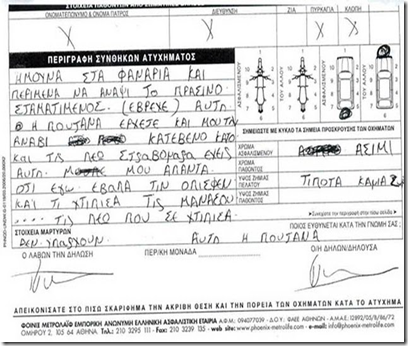 ΣΤΟΙΧΕΙΑ ΠΑΘΟΝΤΩΝ ΑΠΟ
ΟΝΟΜΑΤΕΠΩΝΥΜΟ & ΟΝΟΜΑ ΠΑΤΡΟΣ ΔΙΕΥΘΥΝΣΗ ΖΙΑ ΠΥΡΚΑΓΙΑ ΚΛΟΠΗ
X X X
ΠΕΡΙΓΡΑΦΗ ΣΥΝΘΗΚΩΝ ΑΤΥΧΗΜΑΤΟΣ
ΗΜΟΥΝΑ ΣΤΑ ΦΑΝΑΡΙΑ ΚΑΙ
ΠΕΡΙΜΕΝΑ ΝΑ ΑΝΑΨΙ ΤΟ ΠΡΑΣΙΝΟ
ΣΤΑΜΑΤΙΜΕΝΟΣ (ΕΒΡΕΧΕ) ΑΥΤΟ
Η ΠΟΥΤΑΝΑ ΕΡΧΕΤΕ ΚΑΙ ΜΟΥ ΤΗΝ
ΑΝΑΒΙ ΚΑΤΕΒΕΝΟ ΚΑΤΟ
ΚΑΙ ΤΙΣ ΛΕΟ ΣΤΡΑΒΟΜΑΡΑ ΕΧΕΙΣ
ΑΥΤΟ ΜΟΥ ΑΠΑΝΤΑ
ΟΤΙ ΕΓΩ ΕΒΑΛΑ ΤΙΝ ΟΠΙΣΘΕΝ
ΚΑΙ ΤΙ ΧΤΙΠΙΣΑ ΤΙΣ ΜΑΝΑΣΟΥ
.... ΤΙΣ ΛΕΟ ΠΟΥ ΣΕ ΧΤΙΠΙΣΑ
ΑΣΦΑΛΙΣΜΕΝΟΥ
ΤΟΥ ΑΛΛΟΥ
ΑΣΦΑΛΙΣΜΕΝΟΥ
ΤΟΥ ΑΛΛΟΥ
ΣΗΜΕΙΩΣΤΕ ΜΕ ΚΥΚΛΟ ΤΑ ΣΗΜΕΙΑ ΠΡΟΣΚΡΟΥΣΗΣ ΤΩΝ ΟΧΗΜΑΤΩΝ
ΧΡΩΜΑ ΑΣΦΑΛΙΣΜΕΝΟΥ ΑΣΙΜΙ
ΧΡΩΜΑ ΠΑΘΟΝΤΟΣ
ΥΨΟΣ ΖΗΜΙΑΣ ΠΕΛΑΤΟΥ ΤΙΠΟΤΑ ΚΑΜΑ
ΥΨΟΣ ΖΗΜΙΑΣ ΠΑΘΟΝΤΟΣ
Συνεχίστε την περιγραφή στην πίσω σελίδα
ΣΤΟΙΧΕΙΑ ΜΑΡΤΥΡΩΝ ΠΟΙΟΣ ΕΥΘΥΝΕΤΑΙ ΚΑΤΑ ΤΗ ΓΝΩΜΗ ΣΑΣ :
ΔΕΝ ΥΠΑΡΧΟΥΝ ΑΥΤΟ Η ΠΟΥΤΑΝΑ
Ο ΛΑΒΩΝ ΤΗΝ ΔΗΛΩΣΗ ΠΕΡ/ΚΗ ΜΟΝΑΔΑ Ο/Η ΔΗΛΩΝ/ΔΗΛΟΥΣΑ
ΑΠΕΙΚΟΝΙΣΑΤΕ ΣΤΟ ΠΙΣΩ ΣΚΑΡΙΦΗΜΑ ΤΗΝ ΑΚΡΙΒΗ ΘΕΣΗ ΚΑΙ ΤΗΝ ΠΟΡΕΙΑ ΤΩΝ ΟΧΗΜΑΤΩΝ ΚΑΤΑ ΤΟ ΑΤΥΧΗΜΑ
ΦΟΙΝΙΞ ΜΕΤΡΟΛΑΪΦ ΕΜΠΟΡΙΚΗ ΑΝΩΝΥΜΗ ΕΛΛΗΝΙΚΗ ΑΣΦΑΛΙΣΤΙΚΗ ΕΤΑΙΡΙΑ Α.Φ.Μ.: 094077039 - Δ.Ο.Υ.: ΦΑΕΕ ΑΘΗΝΩΝ - ΑΜ/ΑΕ: 12892/05/Β/86/72
ΟΜΗΡΟΥ 2, 105 64 ΑΘΗΝΑ - Τηλ.: 210 3295 111 - Fax: 210 3239 135 - web site: www.phoenix-metrolife.com - e-mail: info@phoenix-metrolife.com